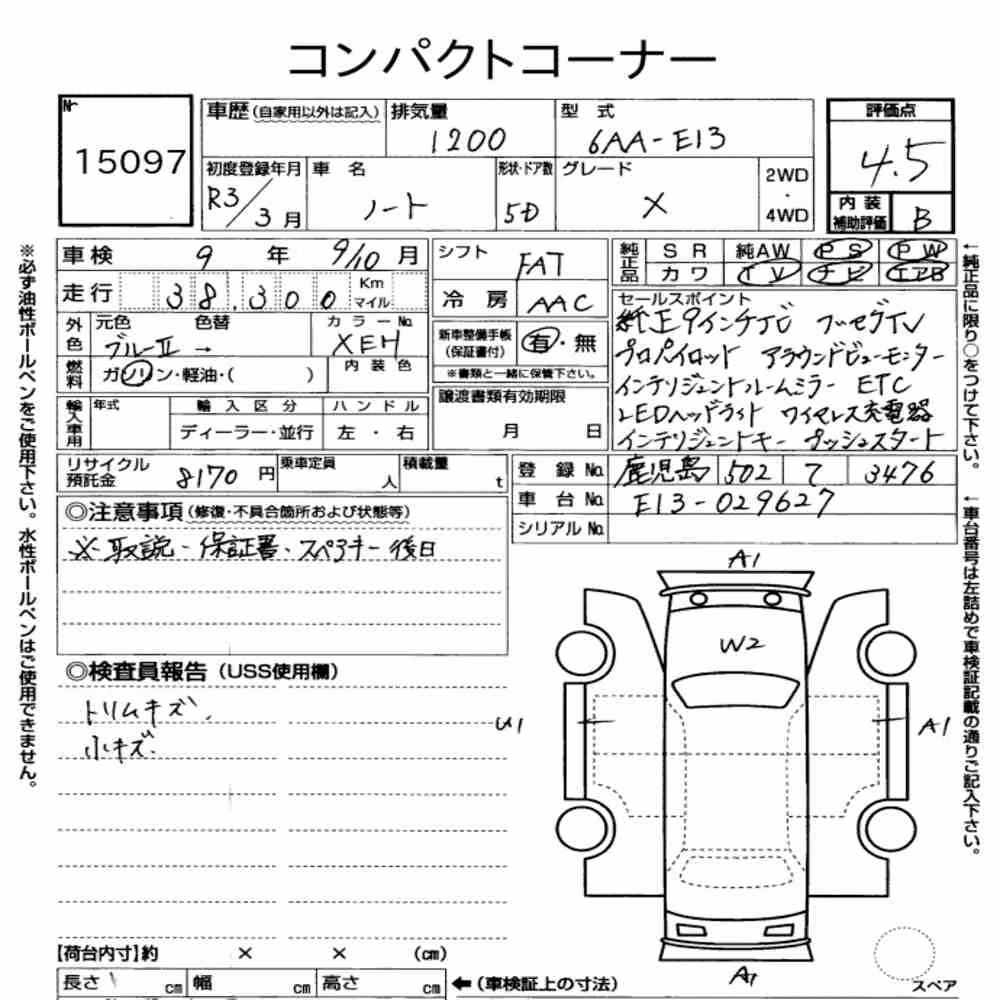 コンパクトコーナー
Nr 15097
車歴(自家用以外は記入) 排気量 1200 型式 6AA-E13 評価点 4.5
初度登録年月 R3/3月 車名 ノート 形状・ドア数 5D グレード X 2WD・4WD 内装補助評価 B
車検 9年 9/10月 シフト FAT 純正品 SR 純AW PS PW
カワ TV ナビ エアB
走行 38,300 Km マイル 冷房 AAC
外色 元色 ブルーⅡ→ 色替 カラーNo. XEH 新車整備手帳(保証書付) 有・無
燃料 ガソリン・軽油・( ) 内装色 ※書類と一緒に保管下さい。
輸入車用 年式 輸入区分 ハンドル 譲渡書類有効期限
ディーラー・並行 左・右 月 日
セールスポイント
純正9インチナビ フルセグTV
プロパイロット アラウンドビューモニター
インテリジェントルームミラー ETC
LEDヘッドライト ワイヤレス充電器
インテリジェントキー プッシュスタート
リサイクル預託金 8170円 乗車定員 人 積載量 t
登録No. 鹿児島 502 7 3476
車台No. E13-029627
シリアルNo.
◎注意事項(修復・不具合箇所および状態等)
※取説・保証書・スペアキー後日
◎検査員報告(USS使用欄)
トリムキズ、
小キズ、
A1
W2
U1
A1
A1
【荷台内寸】約 × × (cm)
長さ cm 幅 cm 高さ cm ←(車検証上の寸法)
スペア
※必ず油性ボールペンをご使用下さい。水性ボールペンはご使用できません。
←純正品に限り○をつけて下さい。
←車台番号は左詰めで車検証記載の通りご記入下さい。